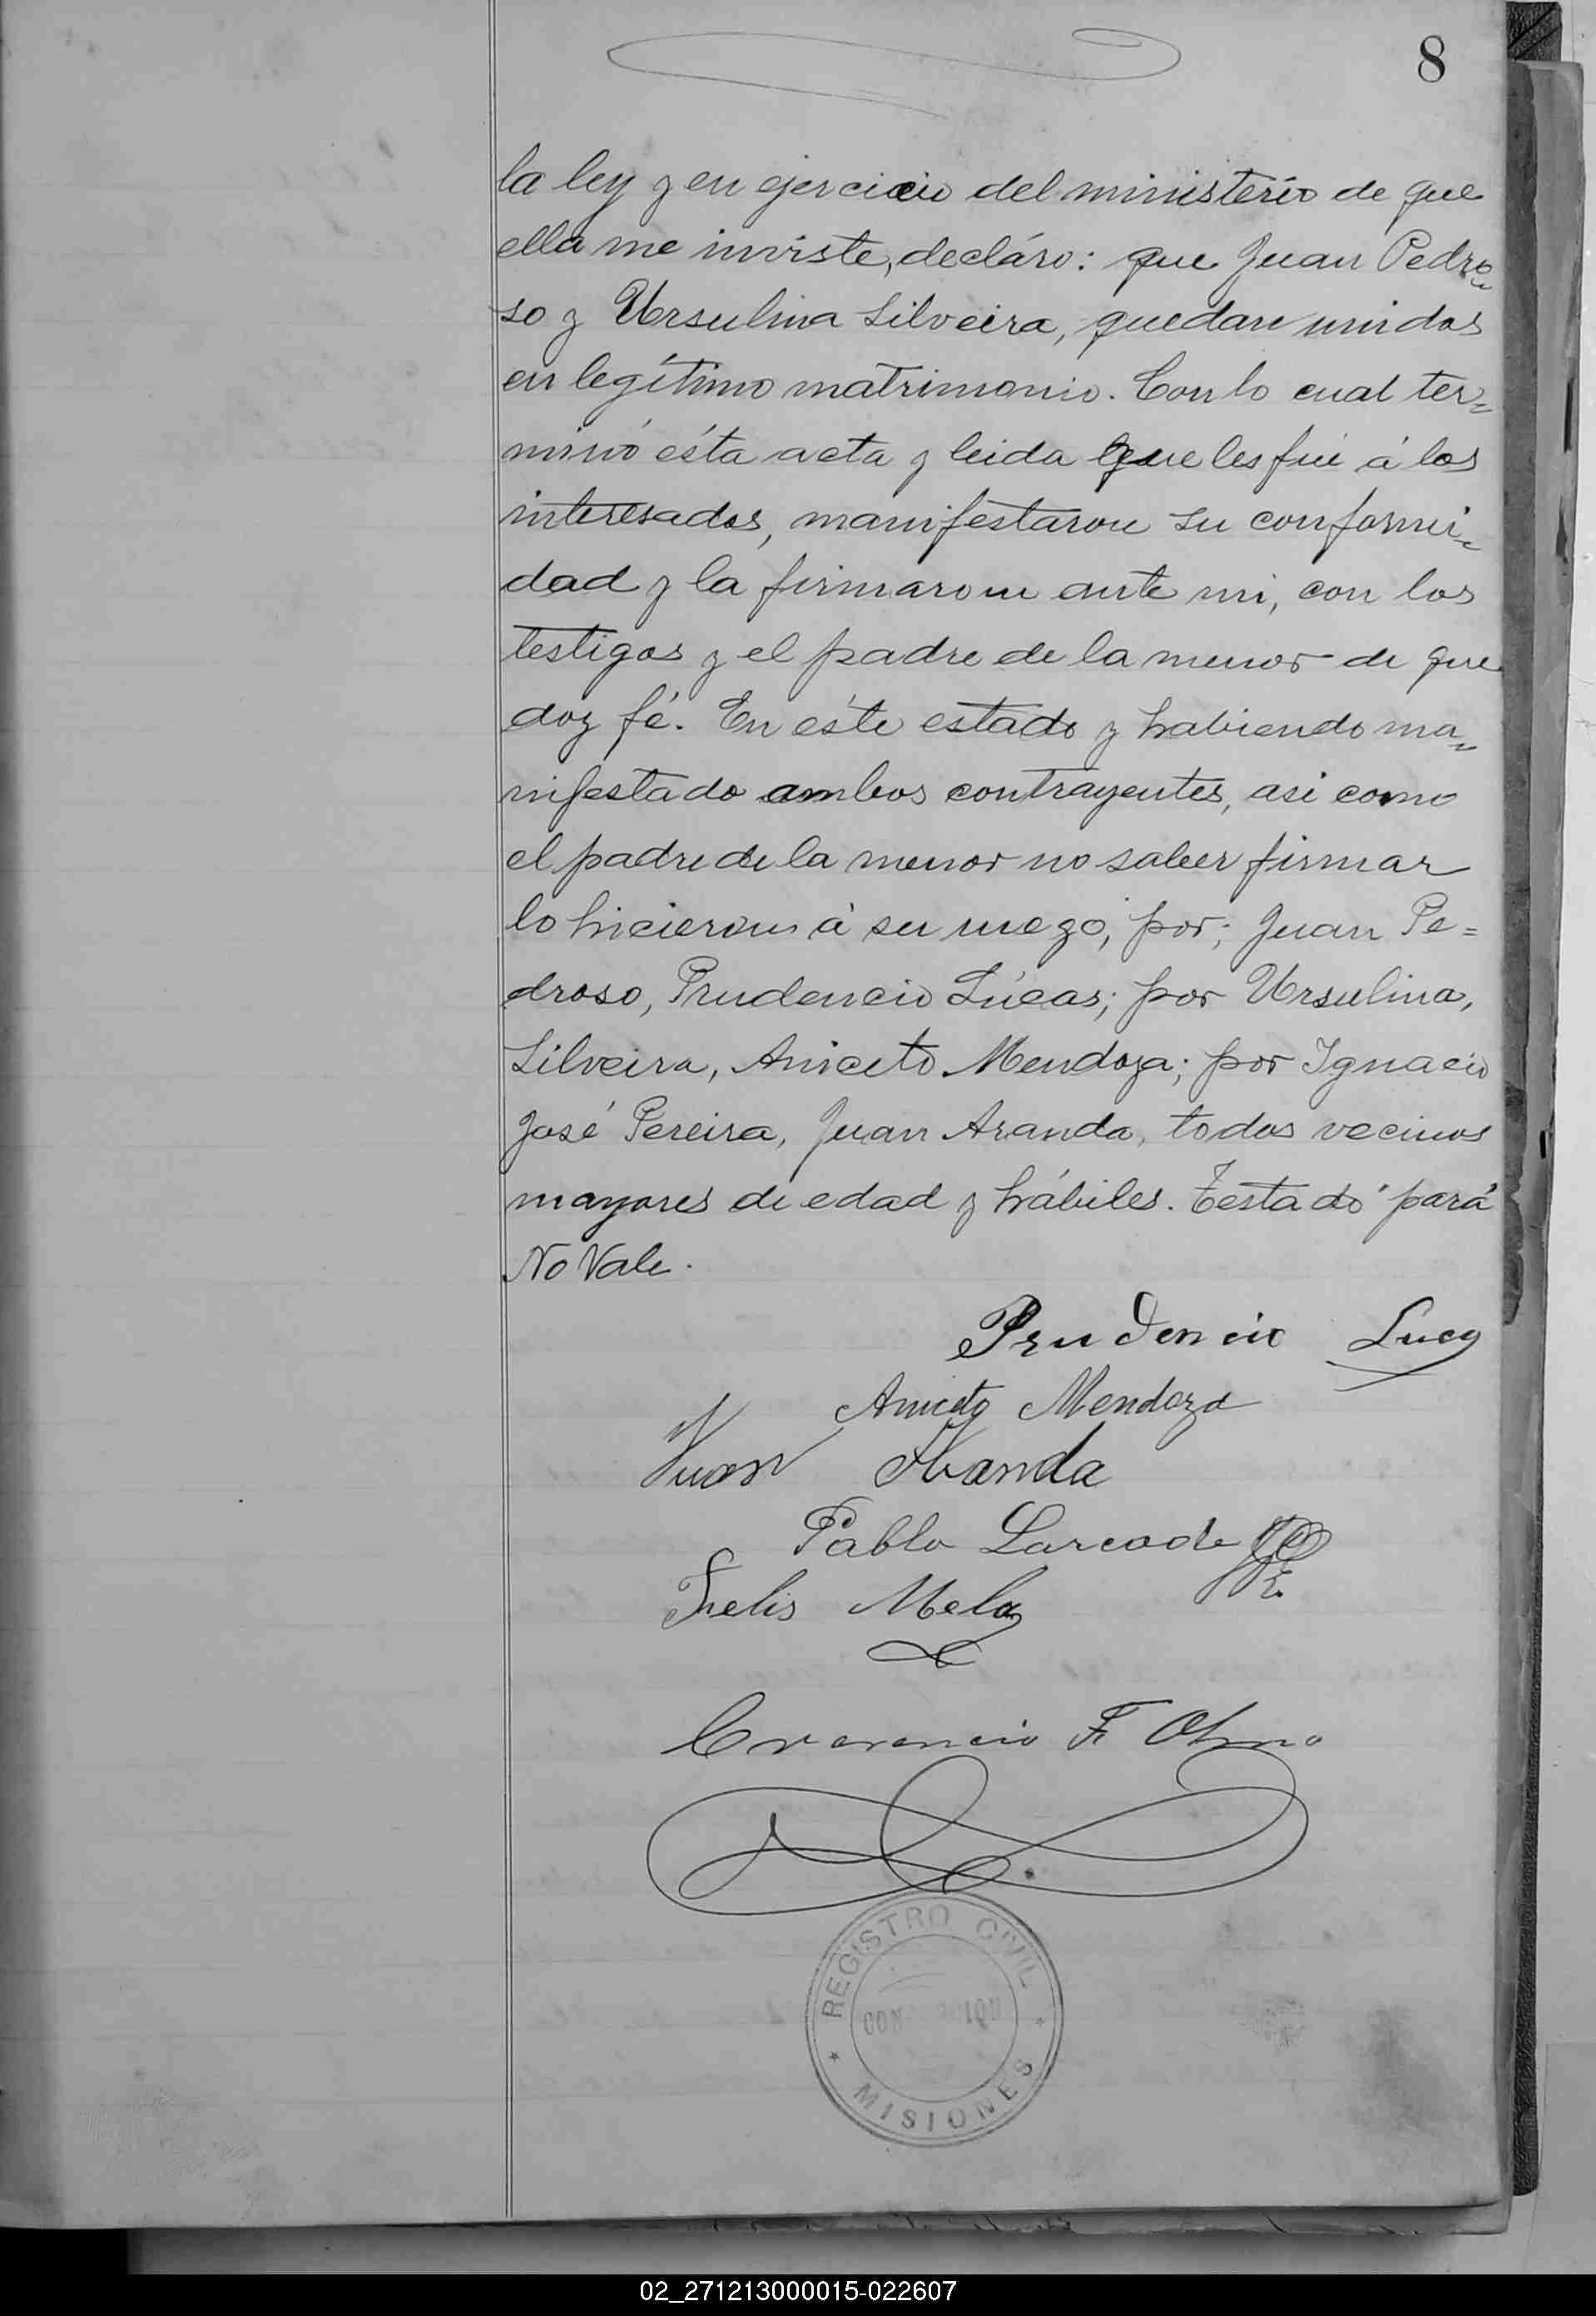 8
la ley y en ejercicio del ministerio de que
ella me inviste, decláro: que Juan Pedro=
so y Ursulina Silveira, quedan unidos
en legítimo matrimonio. Con lo cual ter=
minó ésta acta y leida que les fué á los
interesados, manifestaron su conformi=
dad y la firmaron ante mi, con los
testigos y el padre de la menor de que
doy fé. En éste estado y habiendo ma=
nifestado ambos contrayentes, asi como
el padre de la menor no saber firmar
lo hicieron á su ruego, por; Juan Pe=
droso, Prudencio Lúcas; por Ursulina,
Silveira, Aniceto Mendoza; por Ignacio
José Pereira, Juan Aranda, todos vecinos
mayores de edad y hábiles. Testado "para"
No Vale.
Prudencio Luca
Aniceto Mendoza
Juan Aranda
Pablo Larcade
Felis Melo
F.
REGISTRO CIVIL
MISIONES
02_271213000015-022607